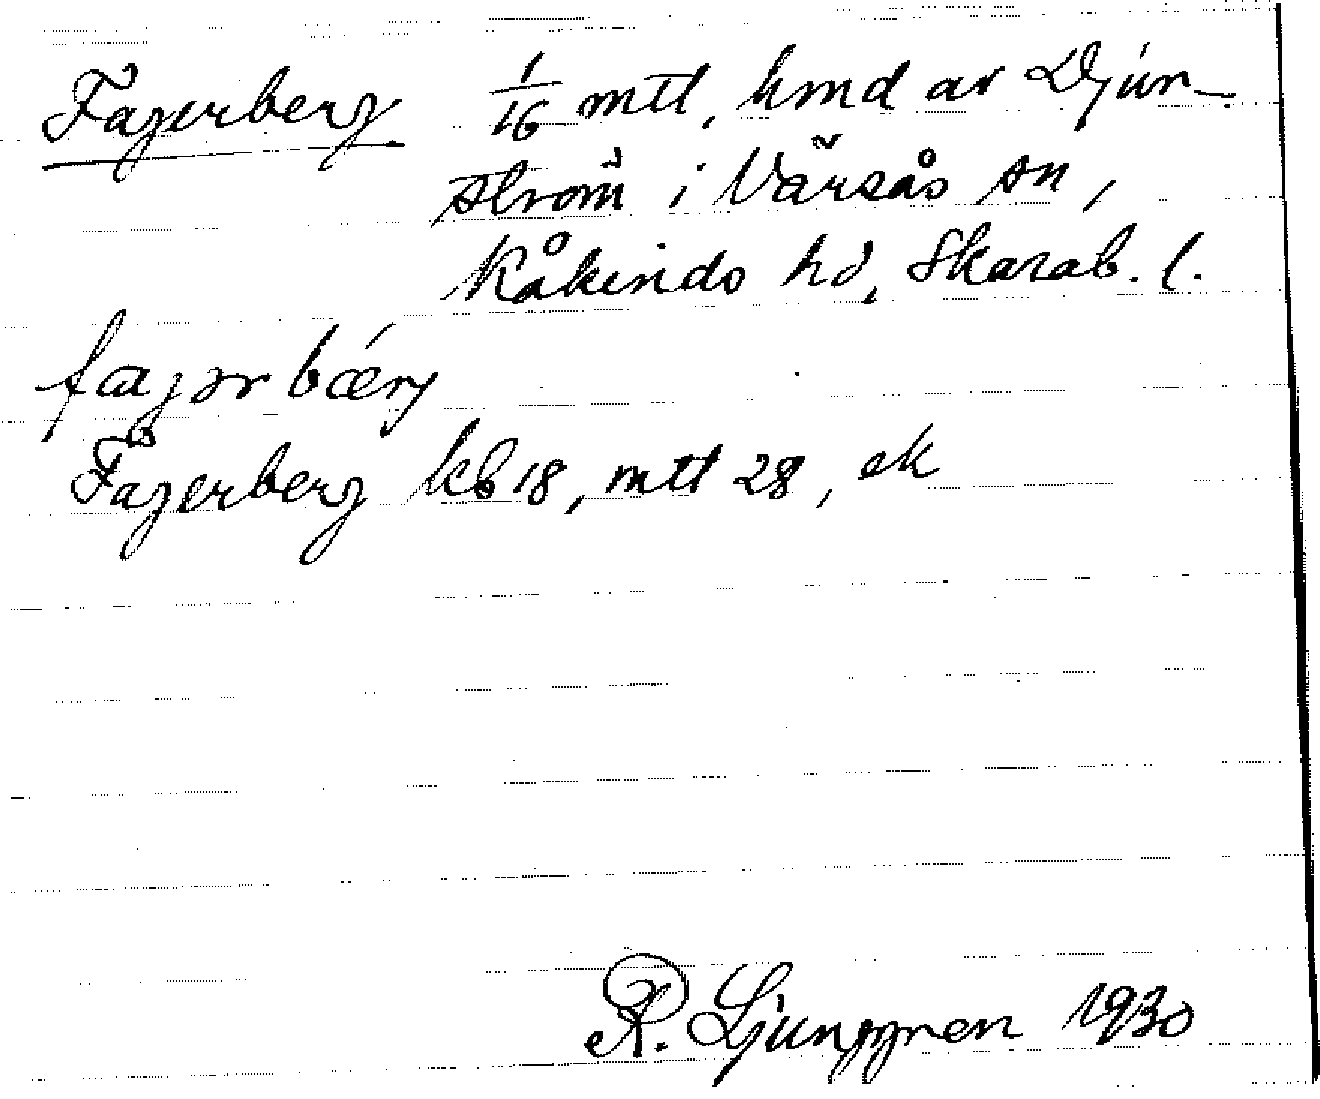 Fagerberg 1/16 mtl, hmd av Djur-
ström i Värsås sn,
Kåkinds hd, Skarab. l.
fajərbǽrj
Fagerberg kb 18, mtl 28, ek
R. Ljunggren 1930